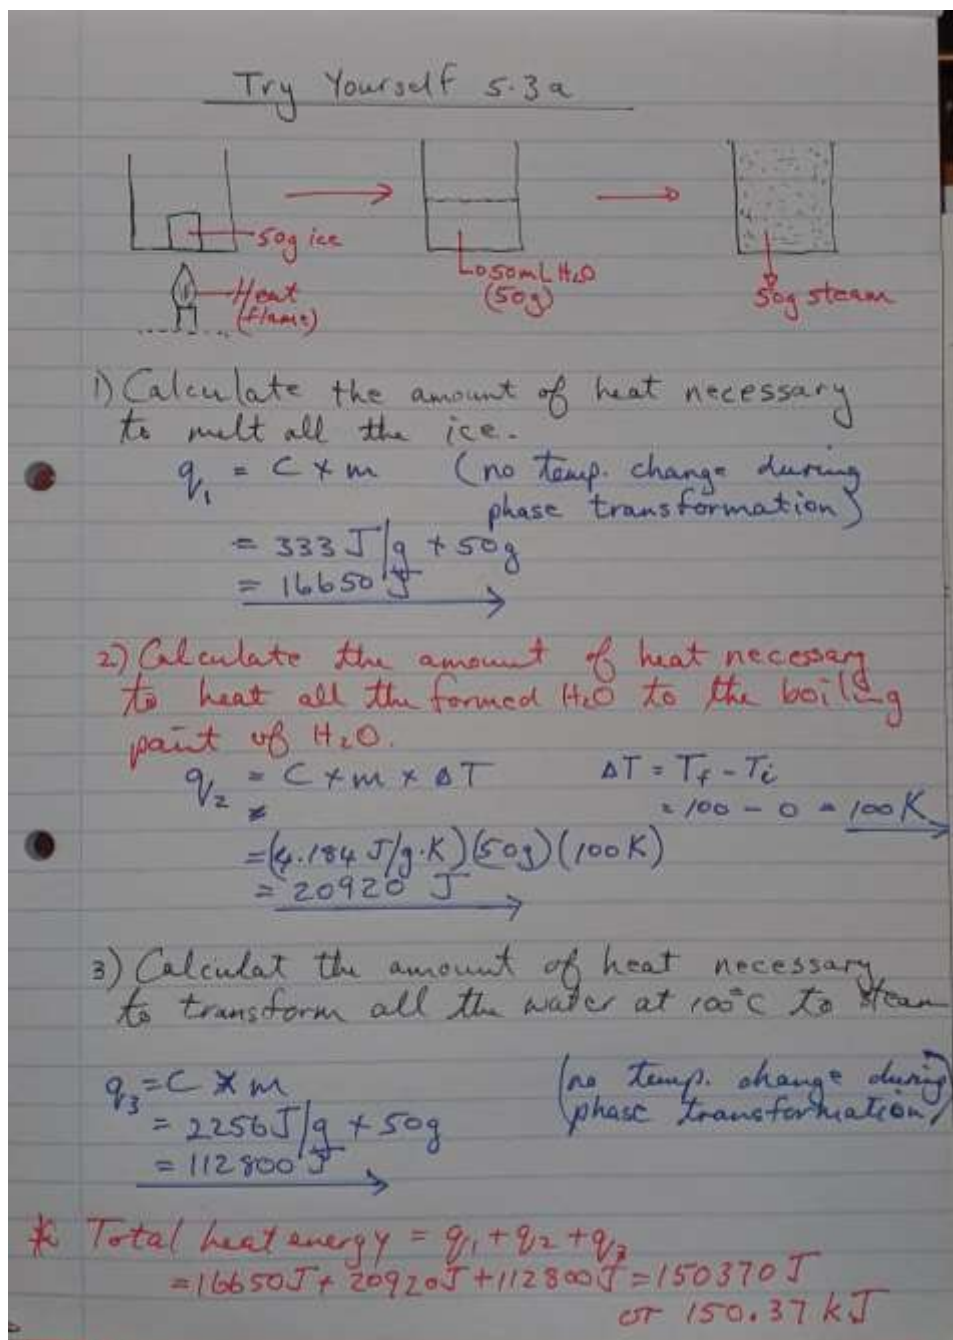 Try Yourself 5.3a
50g ice
Heat
(flame)
50mL H₂O
(50g)
50g steam
1) Calculate the amount of heat necessary
to melt all the ice.
q₁ = C × m (no temp. change during
phase transformation)
= 333 J/g × 50g
= 16650 J
2) Calculate the amount of heat necessary
to heat all the formed H₂O to the boiling
point of H₂O.
q₂ = C × m × ΔT ΔT = T_f - T_i
= 100 - 0 = 100 K
=(4.184 J/g·K)(50g)(100K)
= 20920 J
3) Calculat the amount of heat necessary
to transform all the water at 100°C to steam
q₃ = C × m (no temp. change during
phase transformation)
= 2256 J/g × 50g
= 112800 J
* Total heat energy = q₁ + q₂ + q₃
= 16650J + 20920J + 112800J = 150370 J
or 150.37 kJ